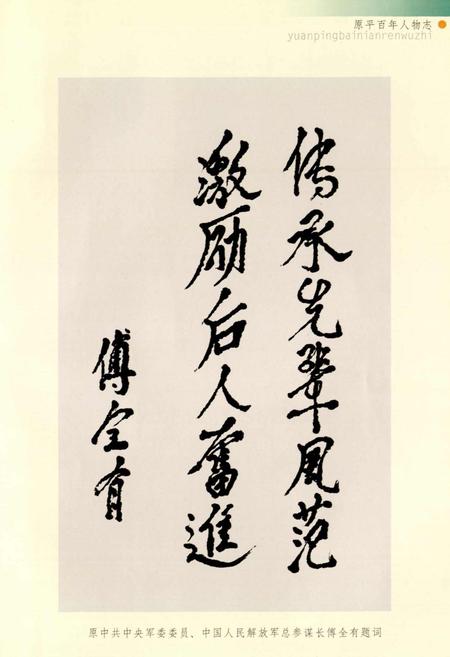 原平百年人物志
yuanpingbainianrenwuzhi
传承先辈风范
激励后人奮進
傅全有
原中共中央军委委员、中国人民解放军总参谋长傅全有题词